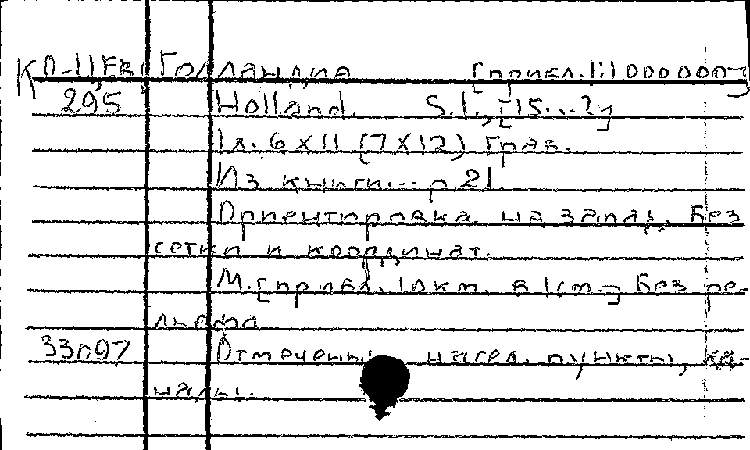 КО-11,ЕВ, Голландия [прибл.1:1000000]
295 Holland. S.l., [15...?]
1 л. 6 x 11 (7 x 12) грав.
Из книги... p 21
Ориентировка на запад. Без
сетки и координат.
М. [прибл. 10 км. в 1 см.] Без ре-
льефа
33097 Отмечены насел. пункты, ка-
налы.